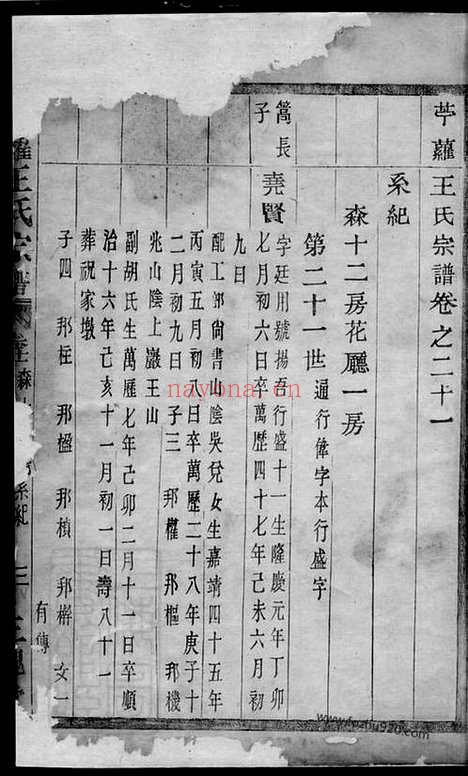 苧蘿王氏宗譜卷之二十一
系紀
森十二房花廳一房
第二十一世 通行偉字本行盛字
篙長子
堯賢 字廷用號揚吾行盛十一生隆慶元年丁卯
七月初六日卒萬歷四十七年己未六月初
九日
配工部尚書山陰吳兌女生嘉靖四十五年
丙寅五月初一日卒萬歷二十八年庚子十
二月初九日 子三 邦權 邦樞 邦機
兆山陰上巖王山
副胡氏生萬歷七年己卯二月十一日卒順
治十六年己亥十一月初一日壽八十一
葬祝家墩
子四 邦柱 邦楹 邦楨 邦檞 女一
有傳
王氏宗譜
系紀
nayona.cn